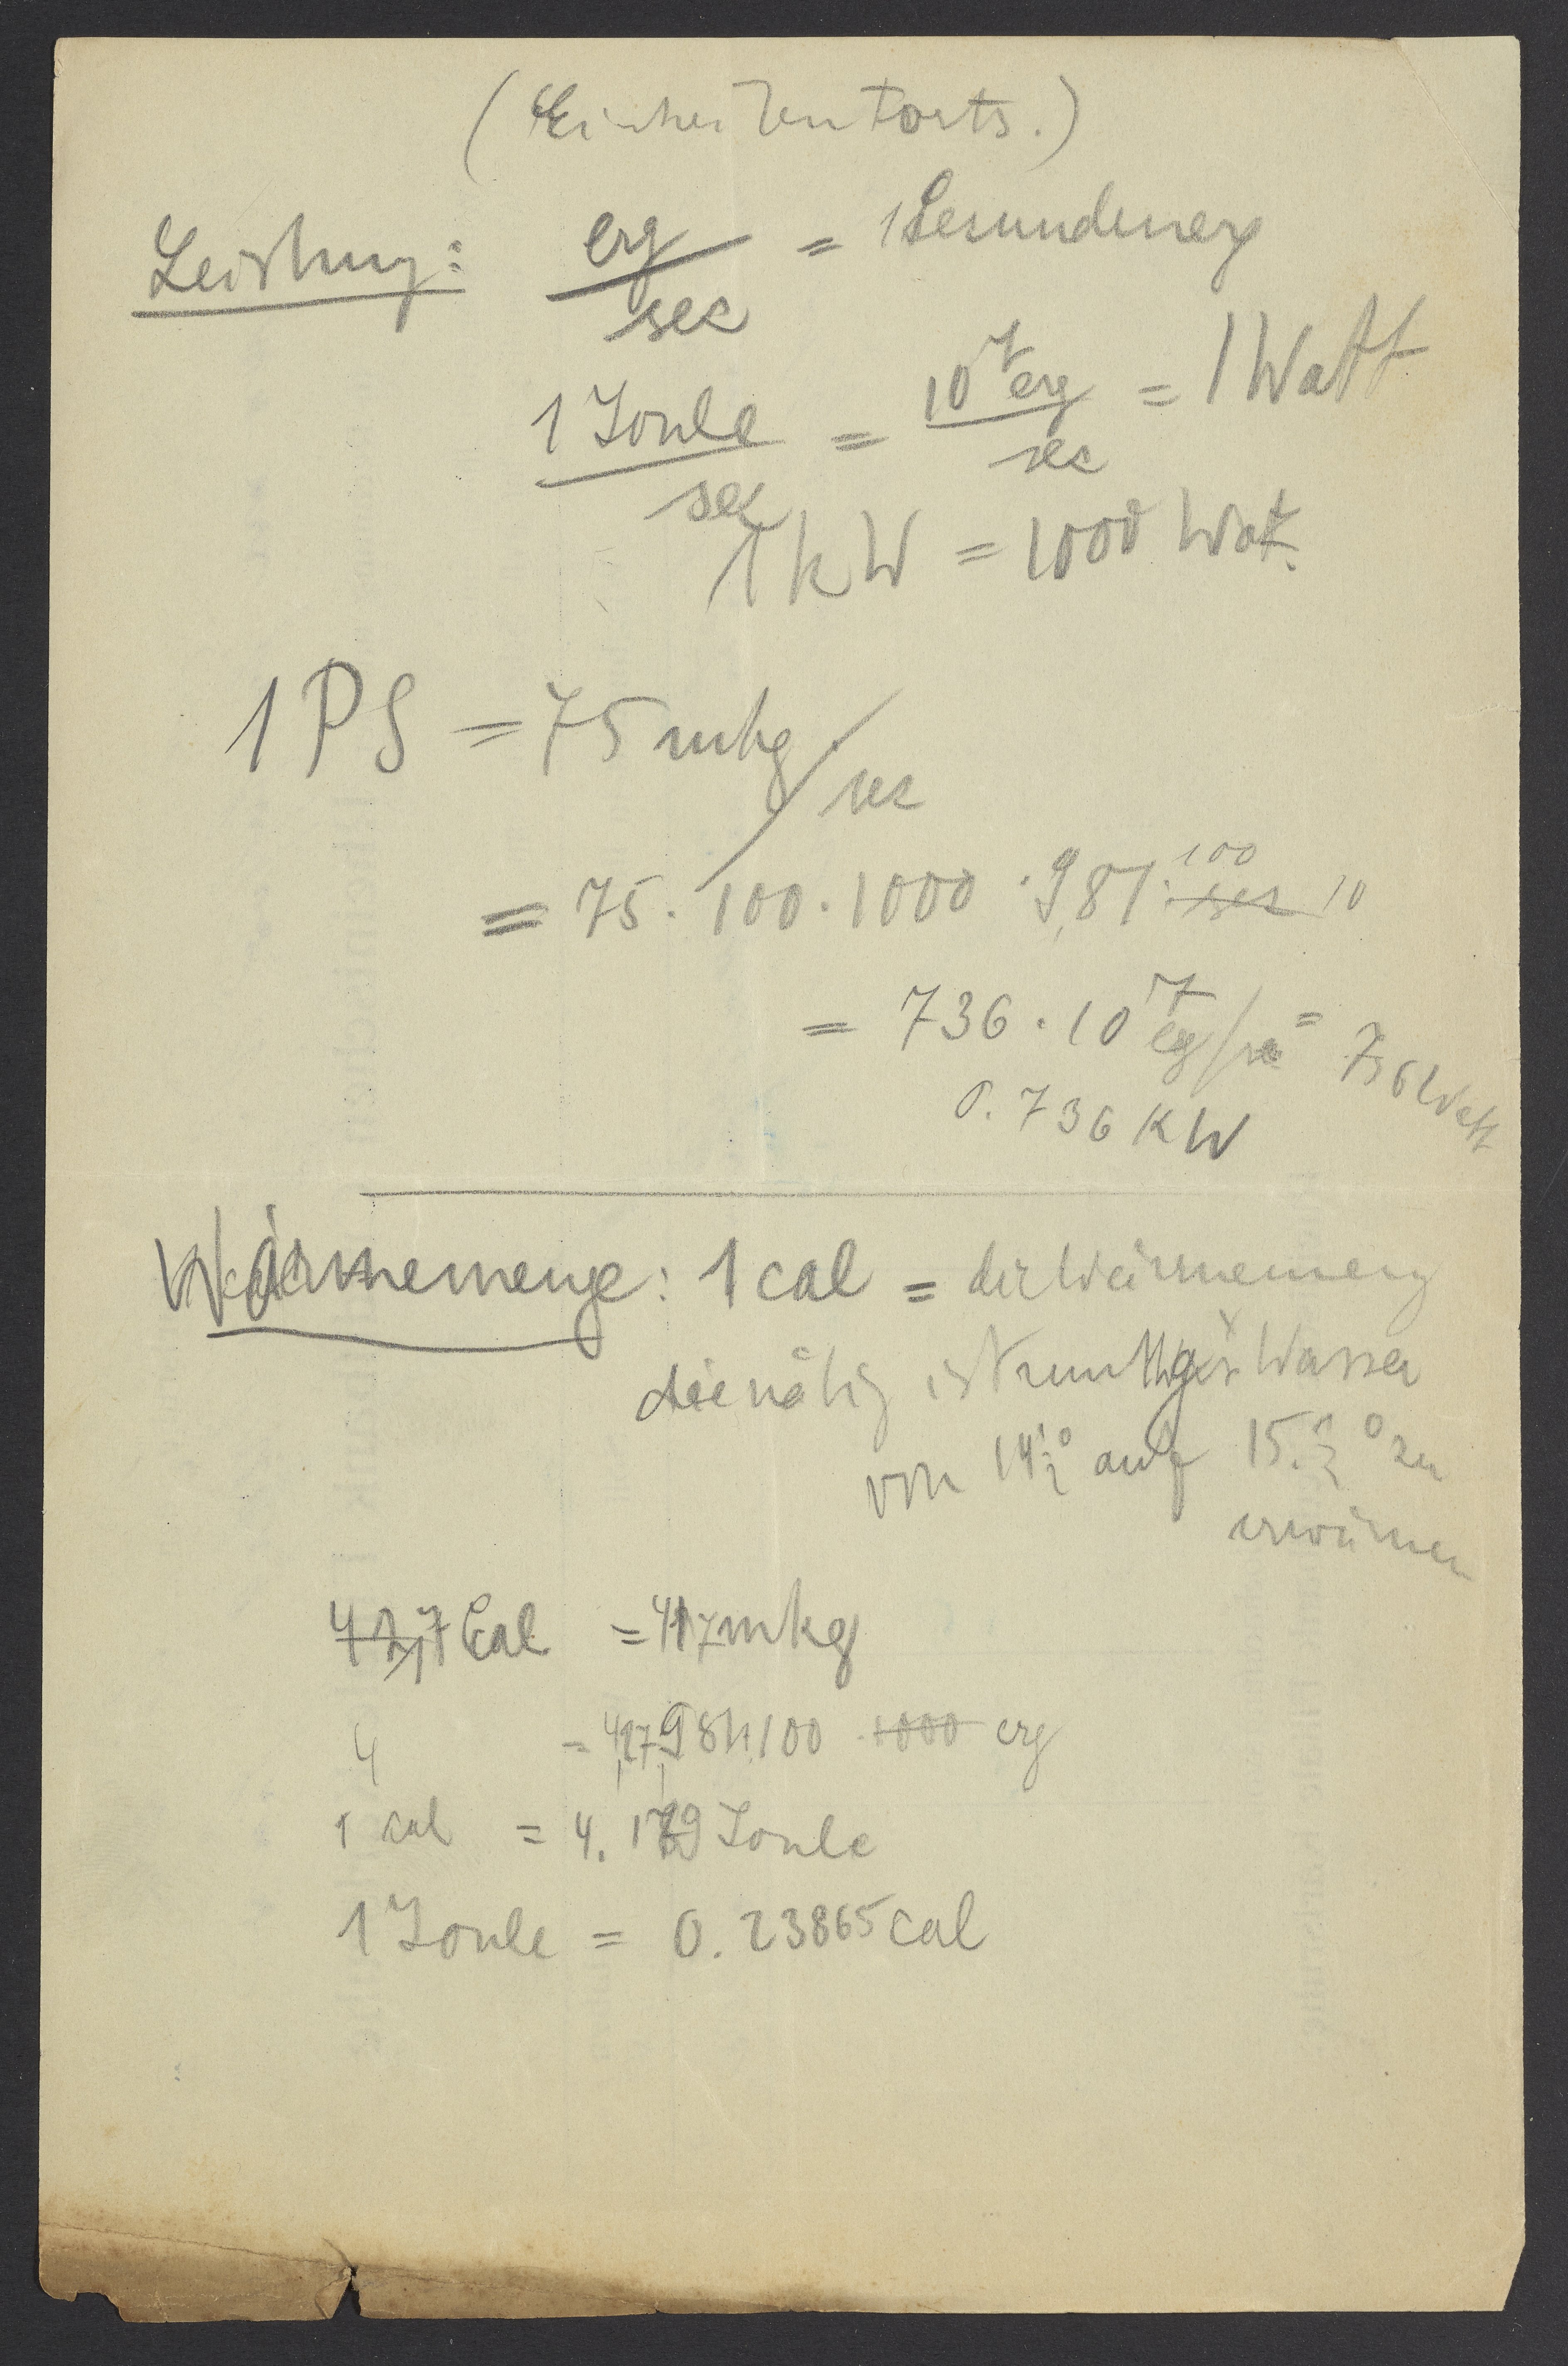 (Einheiten Forts.)
Leistung: erg/sec = 1 Sekundenerg
1 Joule/sec = 10⁷ erg/sec = 1 Watt
1 kW = 1000 Wat.
1 PS = 75 mkg/sec
= 75 · 100 · 1000 · 9,81 · 100 10
= 736 · 10⁷ erg/sec = 736 Watt
0.736 KW
Wärmemenge: 1 cal = die Wärmemeng
die nötig ist um 1 gr Wasser
von 14½° auf 15.½° zu
erwärmen
Cal = 427 mkg
4 = 427 981 · 100 erg
1 cal = 4.189 Joule
1 Joule = 0.23865 cal